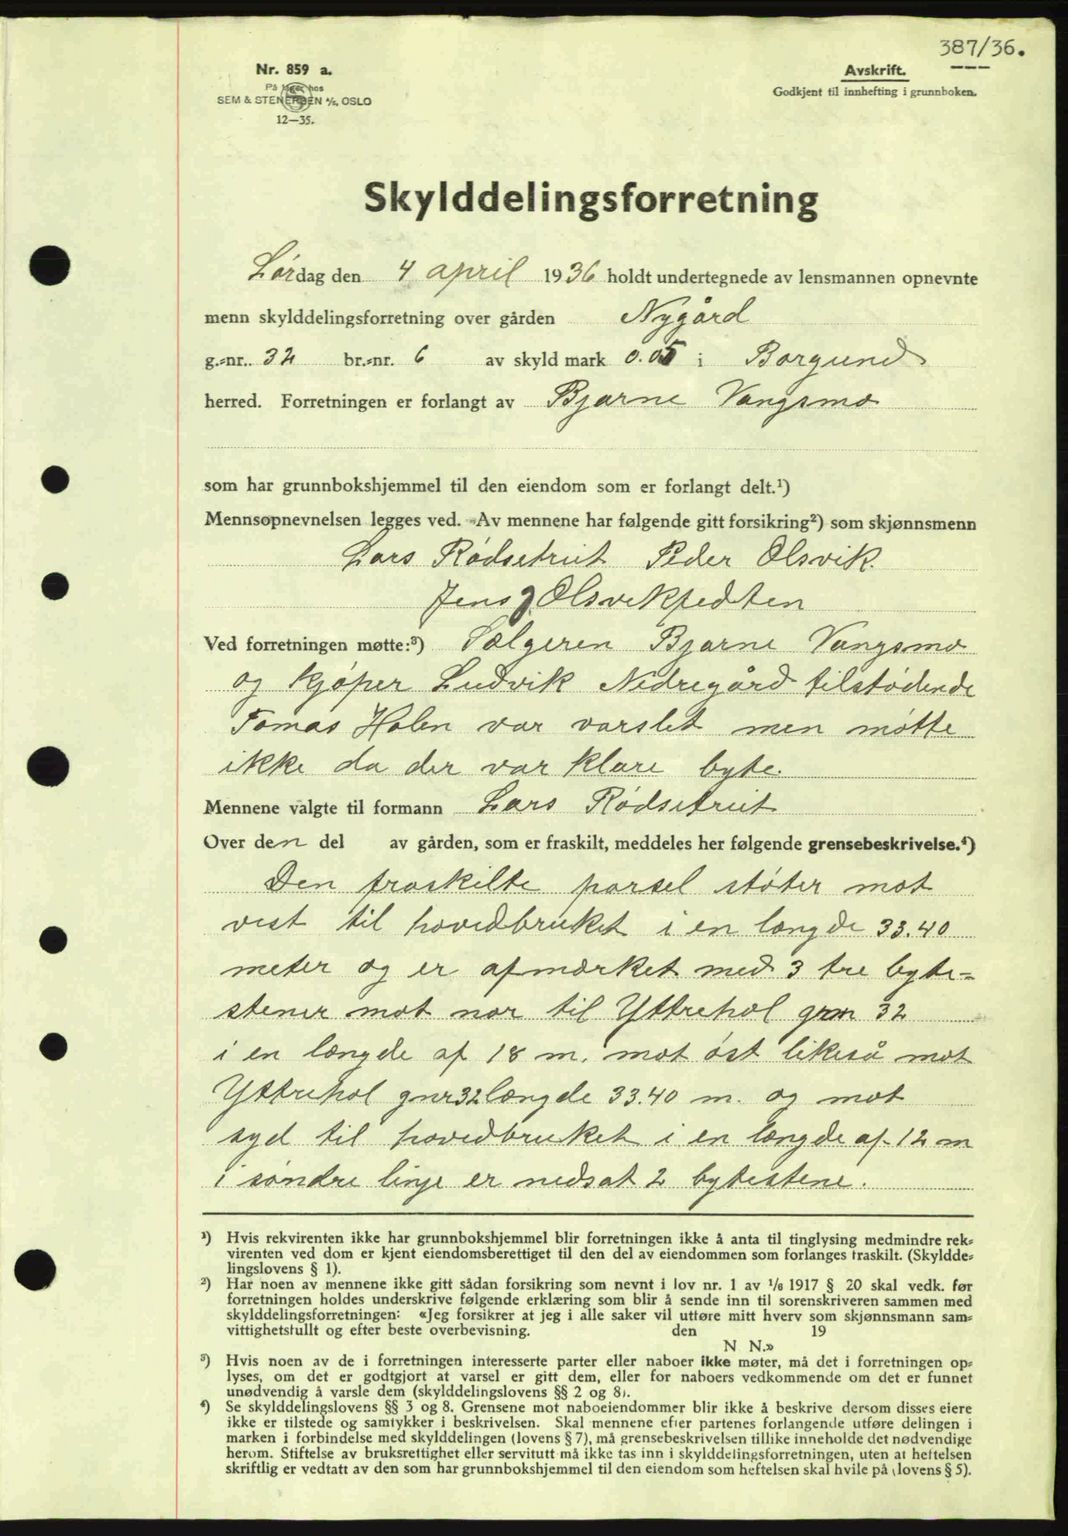 387/36.
Nr. 859 a.
På lager hos
SEM & STENERSEN A/S, OSLO
12—35.
Avskrift.
Godkjent til innhefting i grunnboken.
Skylddelingsforretning
Lørdag den 4 april 1936 holdt undertegnede av lensmannen opnevnte
menn skylddelingsforretning over gården Nygård
g.-nr. 32 br.-nr. 6 av skyld mark 0.05 i Borgund
herred. Forretningen er forlangt av Bjarne Vangsmo
som har grunnbokshjemmel til den eiendom som er forlangt delt.¹)
Mennsopnevnelsen legges ved. Av mennene har følgende gitt forsikring²) som skjønnsmenn
Lars Rødsetreit Peder Olsvik.
Jens J. Olsvikfedten
Ved forretningen møtte:³) Sælgeren Bjarne Vangsmo
og kjøper Ludvik Nedregård tilstødende
Tomas Holen var varslet men møtte
ikke da der var klare byte.
Mennene valgte til formann Lars Rødsetreit
Over den del av gården, som er fraskilt, meddeles her følgende grensebeskrivelse.⁴)
Den fraskilte parsel støter mot
vest til hovedbruket i en længde 33.40
meter og er afmærket med 3 tre byte-
stener mot nor til Yttrehol grm 32
i en længde af 18 m. mot øst likeså mot
Yttrehol gnr 32 længde 33.40 m. og mot
syd til hovedbruket i en længde af 12 m
i søndre linje er nedsat 2 bytestene.
¹) Hvis rekvirenten ikke har grunnbokshjemmel blir forretningen ikke å anta til tinglysing medmindre rek-
virenten ved dom er kjent eiendomsberettiget til den del av eiendommen som forlanges fraskilt. (Skyldde-
lingslovens § 1).
²) Har noen av mennene ikke gitt sådan forsikring som nevnt i lov nr. 1 av 1/6 1917 § 20 skal vedk. før
forretningen holdes underskrive følgende erklæring som blir å sende inn til sorenskriveren sammen med
skylddelingsforretningen: «Jeg forsikrer at jeg i alle saker vil utføre mitt hverv som skjønnsmann sam-
vittighetsfullt og efter beste overbevisning. den 19
N N.»
³) Hvis noen av de i forretningen interesserte parter eller naboer ikke møter, må det i forretningen op-
lyses, om det er godtgjort at varsel er gitt dem, eller for naboers vedkommende om det er funnet
unødvendig å varsle dem (skylddelingslovens §§ 2 og 8).
⁴) Se skylddelingslovens §§ 3 og 8. Grensene mot naboeiendommer blir ikke å beskrive dersom disses eiere
ikke er tilstede og samtykker i beskrivelsen. Skal mennene efter partenes forlangende utføre delingen i
marken i forbindelse med skylddelingen (lovens § 7), må grensebeskrivelsen tillike inneholde det nødvendige
herom. Stiftelse av bruksrettighet eller servitutt må ikke tas inn i skylddelingsforretningen, uten at heftelsen
skriftlig er vedtatt av den som har grunnbokshjemmel til den eiendom som heftelsen skal hvile på (lovens § 5).